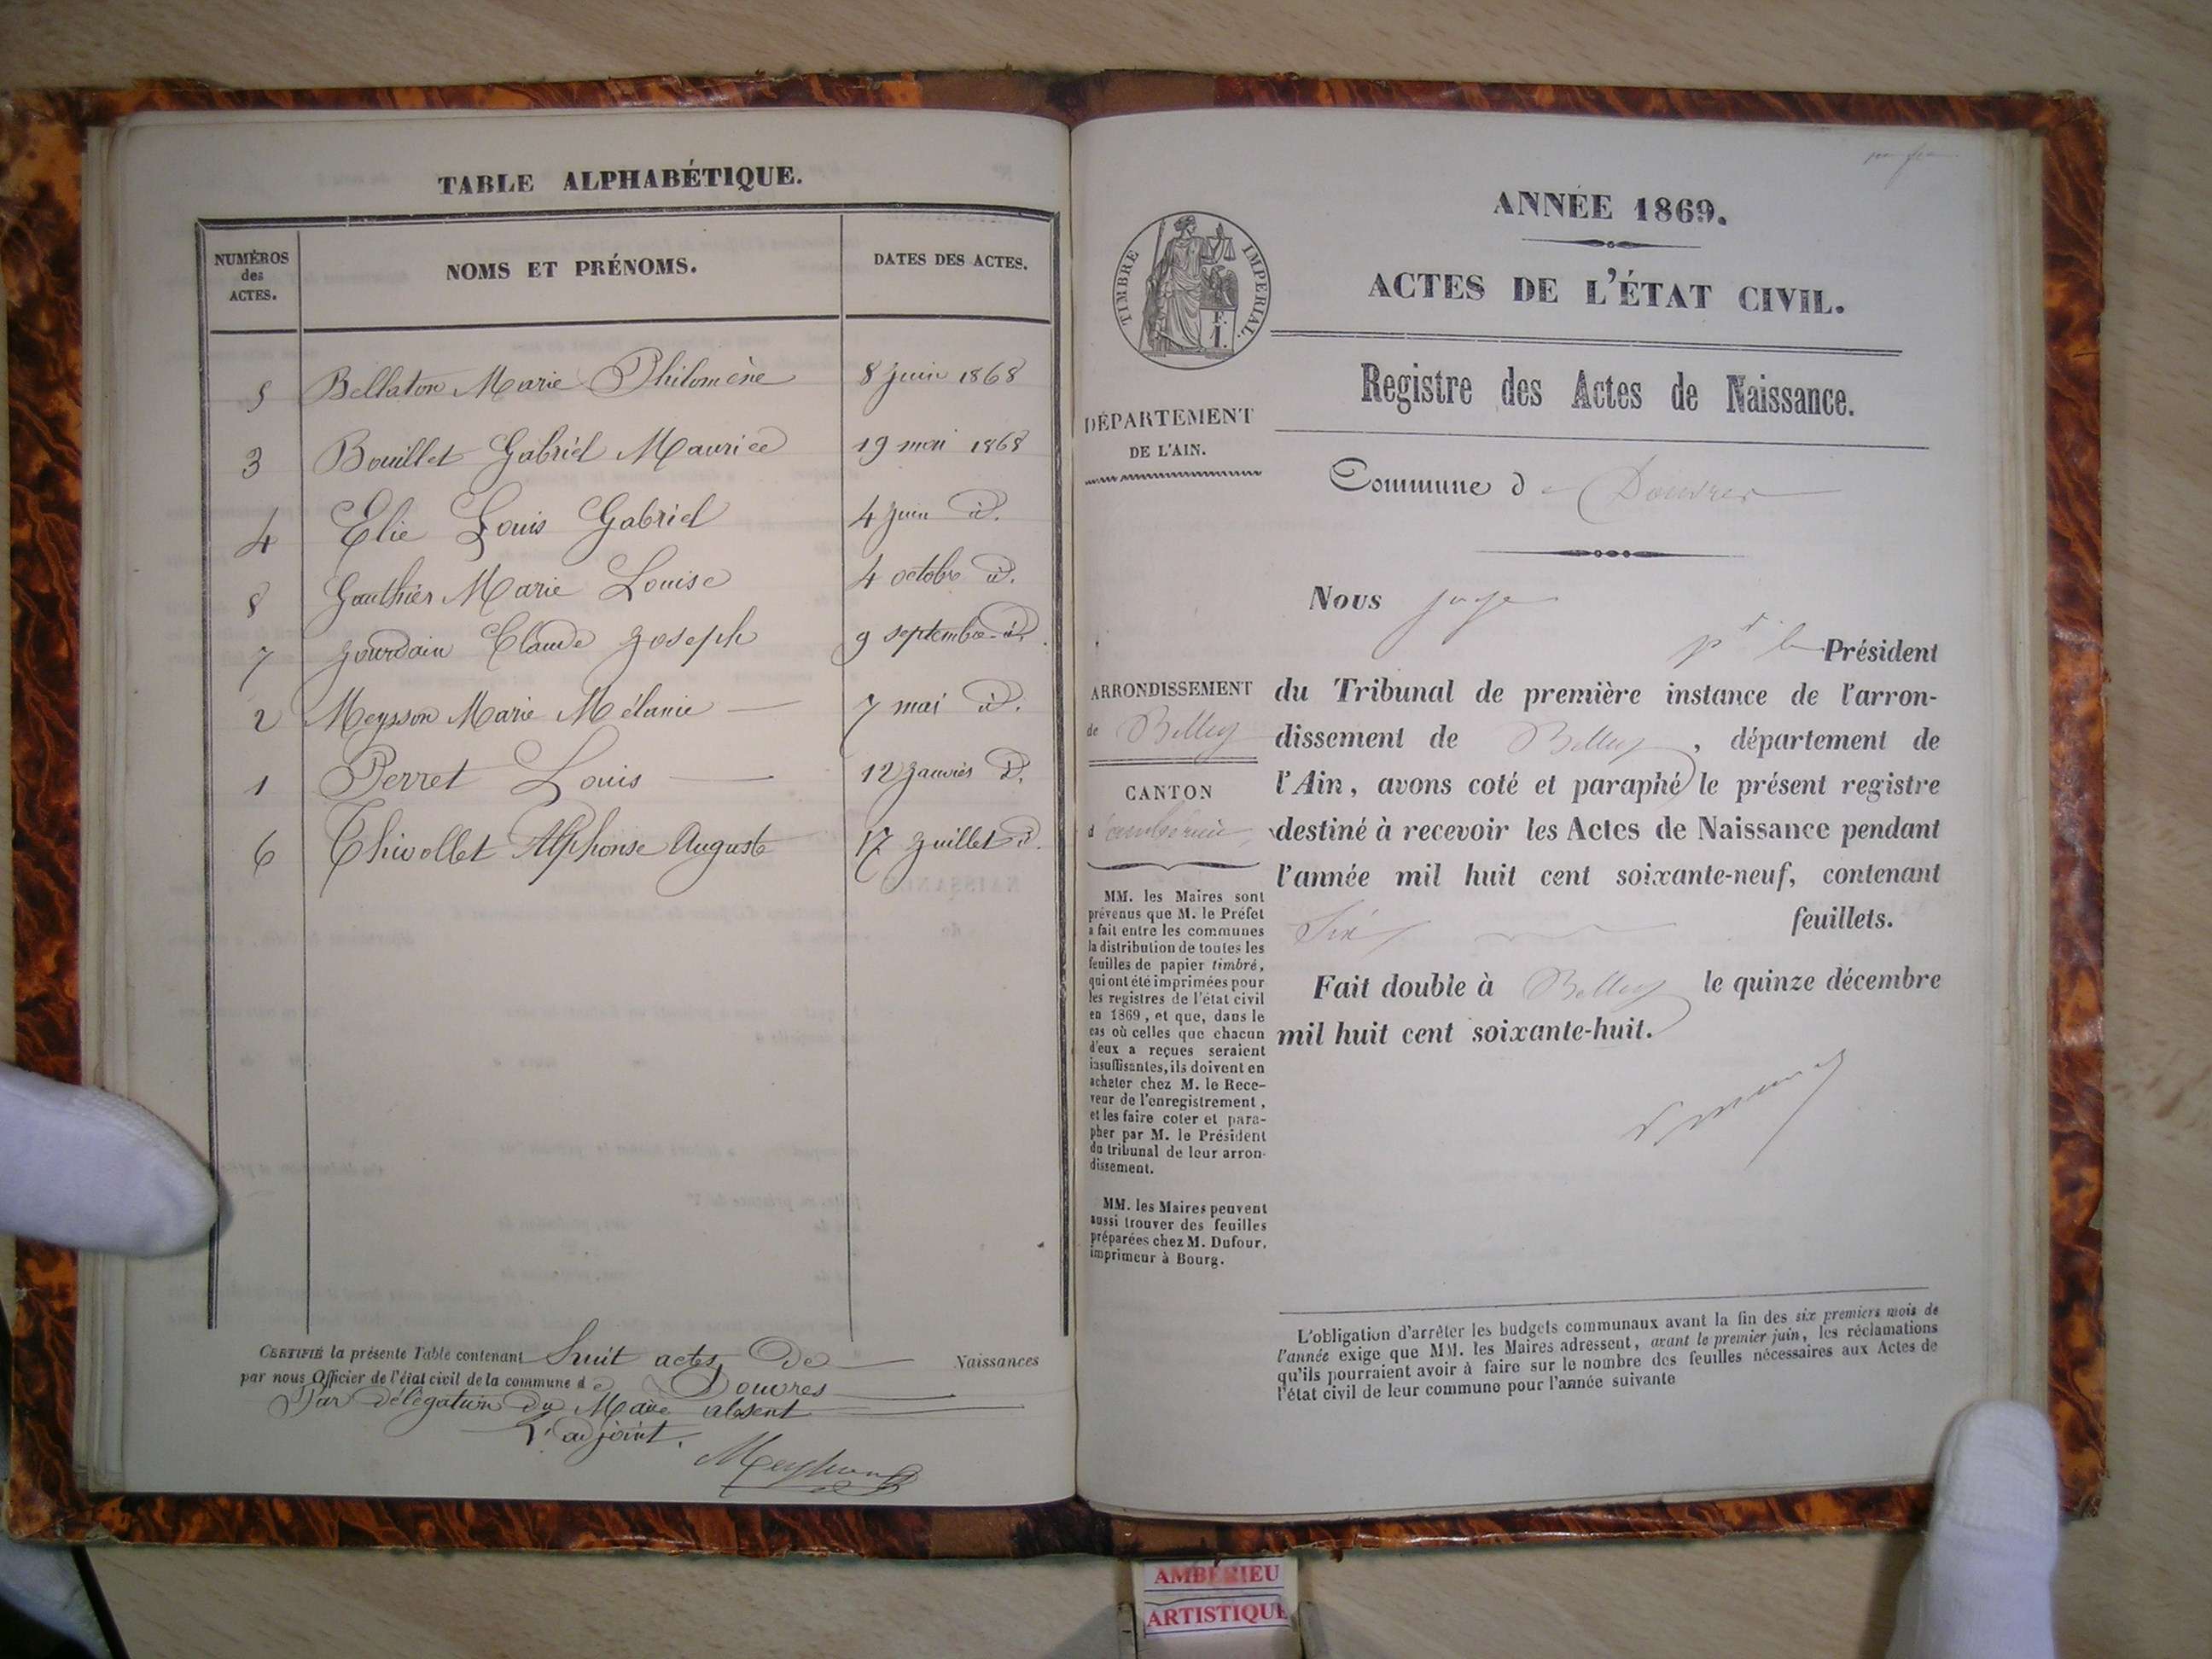 TABLE ALPHABÉTIQUE.
NUMÉROS
des
ACTES.
NOMS ET PRÉNOMS.
DATES DES ACTES.
5 Bellaton Marie Philomène 8 juin 1868
3 Bouillet Gabriel Maurice 19 mai 1868
4 Elie Louis Gabriel 4 juin d.
8 Gauthier Marie Louise 4 octobre d.
7 Jourdain Claude Joseph 9 septembre d.
2 Meysson Marie Mélanie 7 mai d.
1 Perret Louis 12 Janvier d.
6 Thivollet Alphonse Auguste 17 Juillet d.
CERTIFIÉ la présente Table contenant huit actes de Naissances
par nous Officier de l'état civil de la commune de Douvres
Par délégation du Maire absent
L'adjoint.
ANNÉE 1869.
ACTES DE L'ÉTAT CIVIL.
TIMBRE IMPERIAL.
F.
1.
Registre des Actes de Naissance.
DÉPARTEMENT
DE L'AIN.
Commune de Douvres
Nous juge
pt le Président
ARRONDISSEMENT
de Belley
CANTON
d'ambérieu
du Tribunal de première instance de l'arron-
dissement de Belley, département de
l'Ain, avons coté et paraphé le présent registre
destiné à recevoir les Actes de Naissance pendant
l'année mil huit cent soixante-neuf, contenant
Six feuillets.
Fait double à Belley le quinze décembre
mil huit cent soixante-huit.
MM. les Maires sont
prévenus que M. le Préfet
a fait entre les communes
la distribution de toutes les
feuilles de papier timbré,
qui ont été imprimées pour
les registres de l'état civil
en 1869, et que, dans le
cas où celles que chacun
d'eux a reçues seraient
insuffisantes, ils doivent en
acheter chez M. le Rece-
veur de l'enregistrement,
et les faire coter et para-
pher par M. le Président
du tribunal de leur arron-
dissement.
MM. les Maires peuvent
aussi trouver des feuilles
préparées chez M. Dufour,
imprimeur à Bourg.
L'obligation d'arrêter les budgets communaux avant la fin des six premiers mois de
l'année exige que MM. les Maires adressent, avant le premier juin, les réclamations
qu'ils pourraient avoir à faire sur le nombre des feuilles nécessaires aux Actes de
l'état civil de leur commune pour l'année suivante
AMBÉRIEU
ARTISTIQUE